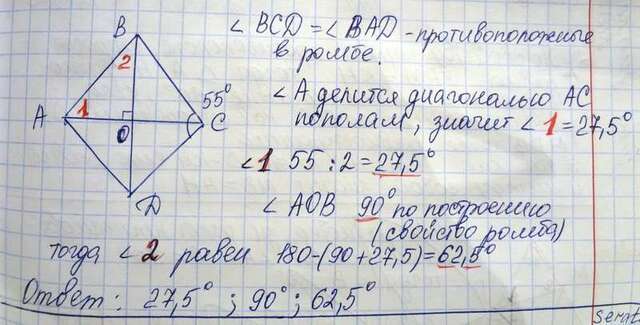 B
∠ BCD = ∠ BAD - противоположные
в ромбе.
2
55°
∠ A делится диагональю AC
пополам, значит ∠ 1 = 27,5°
A
1
O
C
∠1 55 : 2 = 27,5°
D
∠ AOB 90° по построению
(свойство ромба)
тогда ∠ 2 равен 180-(90+27,5)=62,5°
Ответ: 27,5° ; 90° ; 62,5°